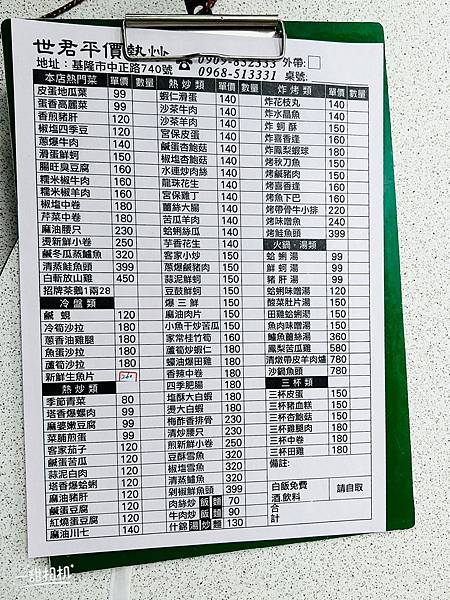 世君平價熱炒
地址：基隆市中正路740號
☎0909-832333 外帶：□
0968-513331 桌號：
本店熱門菜 單價 數量
皮蛋地瓜葉 99
蛋香高麗菜 99
香煎豬肝 120
椒塩四季豆 120
蔥爆牛肉 140
滑蛋鮮蚵 150
腸旺臭豆腐 160
糯米椒牛肉 160
糯米椒羊肉 160
椒塩中卷 180
芹菜中卷 180
麻油腰只 230
燙新鮮小卷 250
鹹冬瓜蒸鱸魚 320
清蒸鮭魚頭 399
白斬放山雞 450
招牌茶鵝1兩28
冷盤類
鹹蜆 120
冷筍沙拉 180
蔥香油雞腿 180
魚蛋沙拉 180
蘆筍沙拉 180
新鮮生魚片
熱炒類
季節青菜 80
塔香爆螺肉 99
麻婆嫩豆腐 99
菜脯煎蛋 99
客家茄子 120
鹹蛋苦瓜 120
蒜泥白肉 120
塔香爆蛤蜊 120
麻油豬肝 120
鹹蛋豆腐 120
紅燒蛋豆腐 120
麻油川七 140
熱炒類 單價 數量
蝦仁滑蛋 140
沙茶牛肉 140
沙茶羊肉 140
宮保皮蛋 140
鹹蛋杏鮑菇 140
椒塩杏鮑菇 140
水連炒肉絲 140
龍珠花生 140
宮保雞丁 140
薑絲大腸 140
苦瓜羊肉 140
蛤蜊絲瓜 140
芋香花生 140
客家小炒 150
蔥爆鹹豬肉 150
蒜泥鮮蚵 150
豆鼓鮮蚵 150
爆三鮮 150
麻油肉片 150
小魚干炒苦瓜 150
家常桂竹筍 160
蘆筍炒蝦仁 180
蠔油爆田雞 180
香辣中卷 180
四季肥腸 180
塩酥大白蝦 180
燙大白蝦 180
梅酢香排骨 230
清炒腰只 230
煎新鮮小卷 250
豆酥雪魚 320
椒塩雪魚 320
清蒸鱸魚 320
剁椒鮮魚頭 399
肉絲炒飯麵 70
牛肉炒飯麵 90
什錦湯炒麵 130
炸烤類 單價 數量
炸花枝丸 140
炸水晶魚 140
炸蚵酥 150
炸喜香逢 160
炸鳳梨蝦球 180
烤秋刀魚 150
烤鹹豬肉 150
烤喜香逢 160
烤魚下巴 160
烤帶骨牛小排 220
烤味噌魚 240
烤鮭魚頭 399
火鍋·湯類
蛤蜊湯 99
鮮蚵湯 99
豬肝湯 99
蛤蜊味噌湯 120
酸菜肚片湯 150
田雞蛤蜊湯 150
魚肉味噌湯 150
鱸魚薑絲湯 360
鳳梨苦瓜雞 580
清燉帶皮羊肉爐 780
沙鍋魚頭 780
三杯類
三杯皮蛋 150
三杯豬血糕 150
三杯杏鮑菇 150
三杯雞腿肉 180
三杯中卷 180
三杯田雞 180
備註：
白飯免費
酒.飲料 請自取
合
計